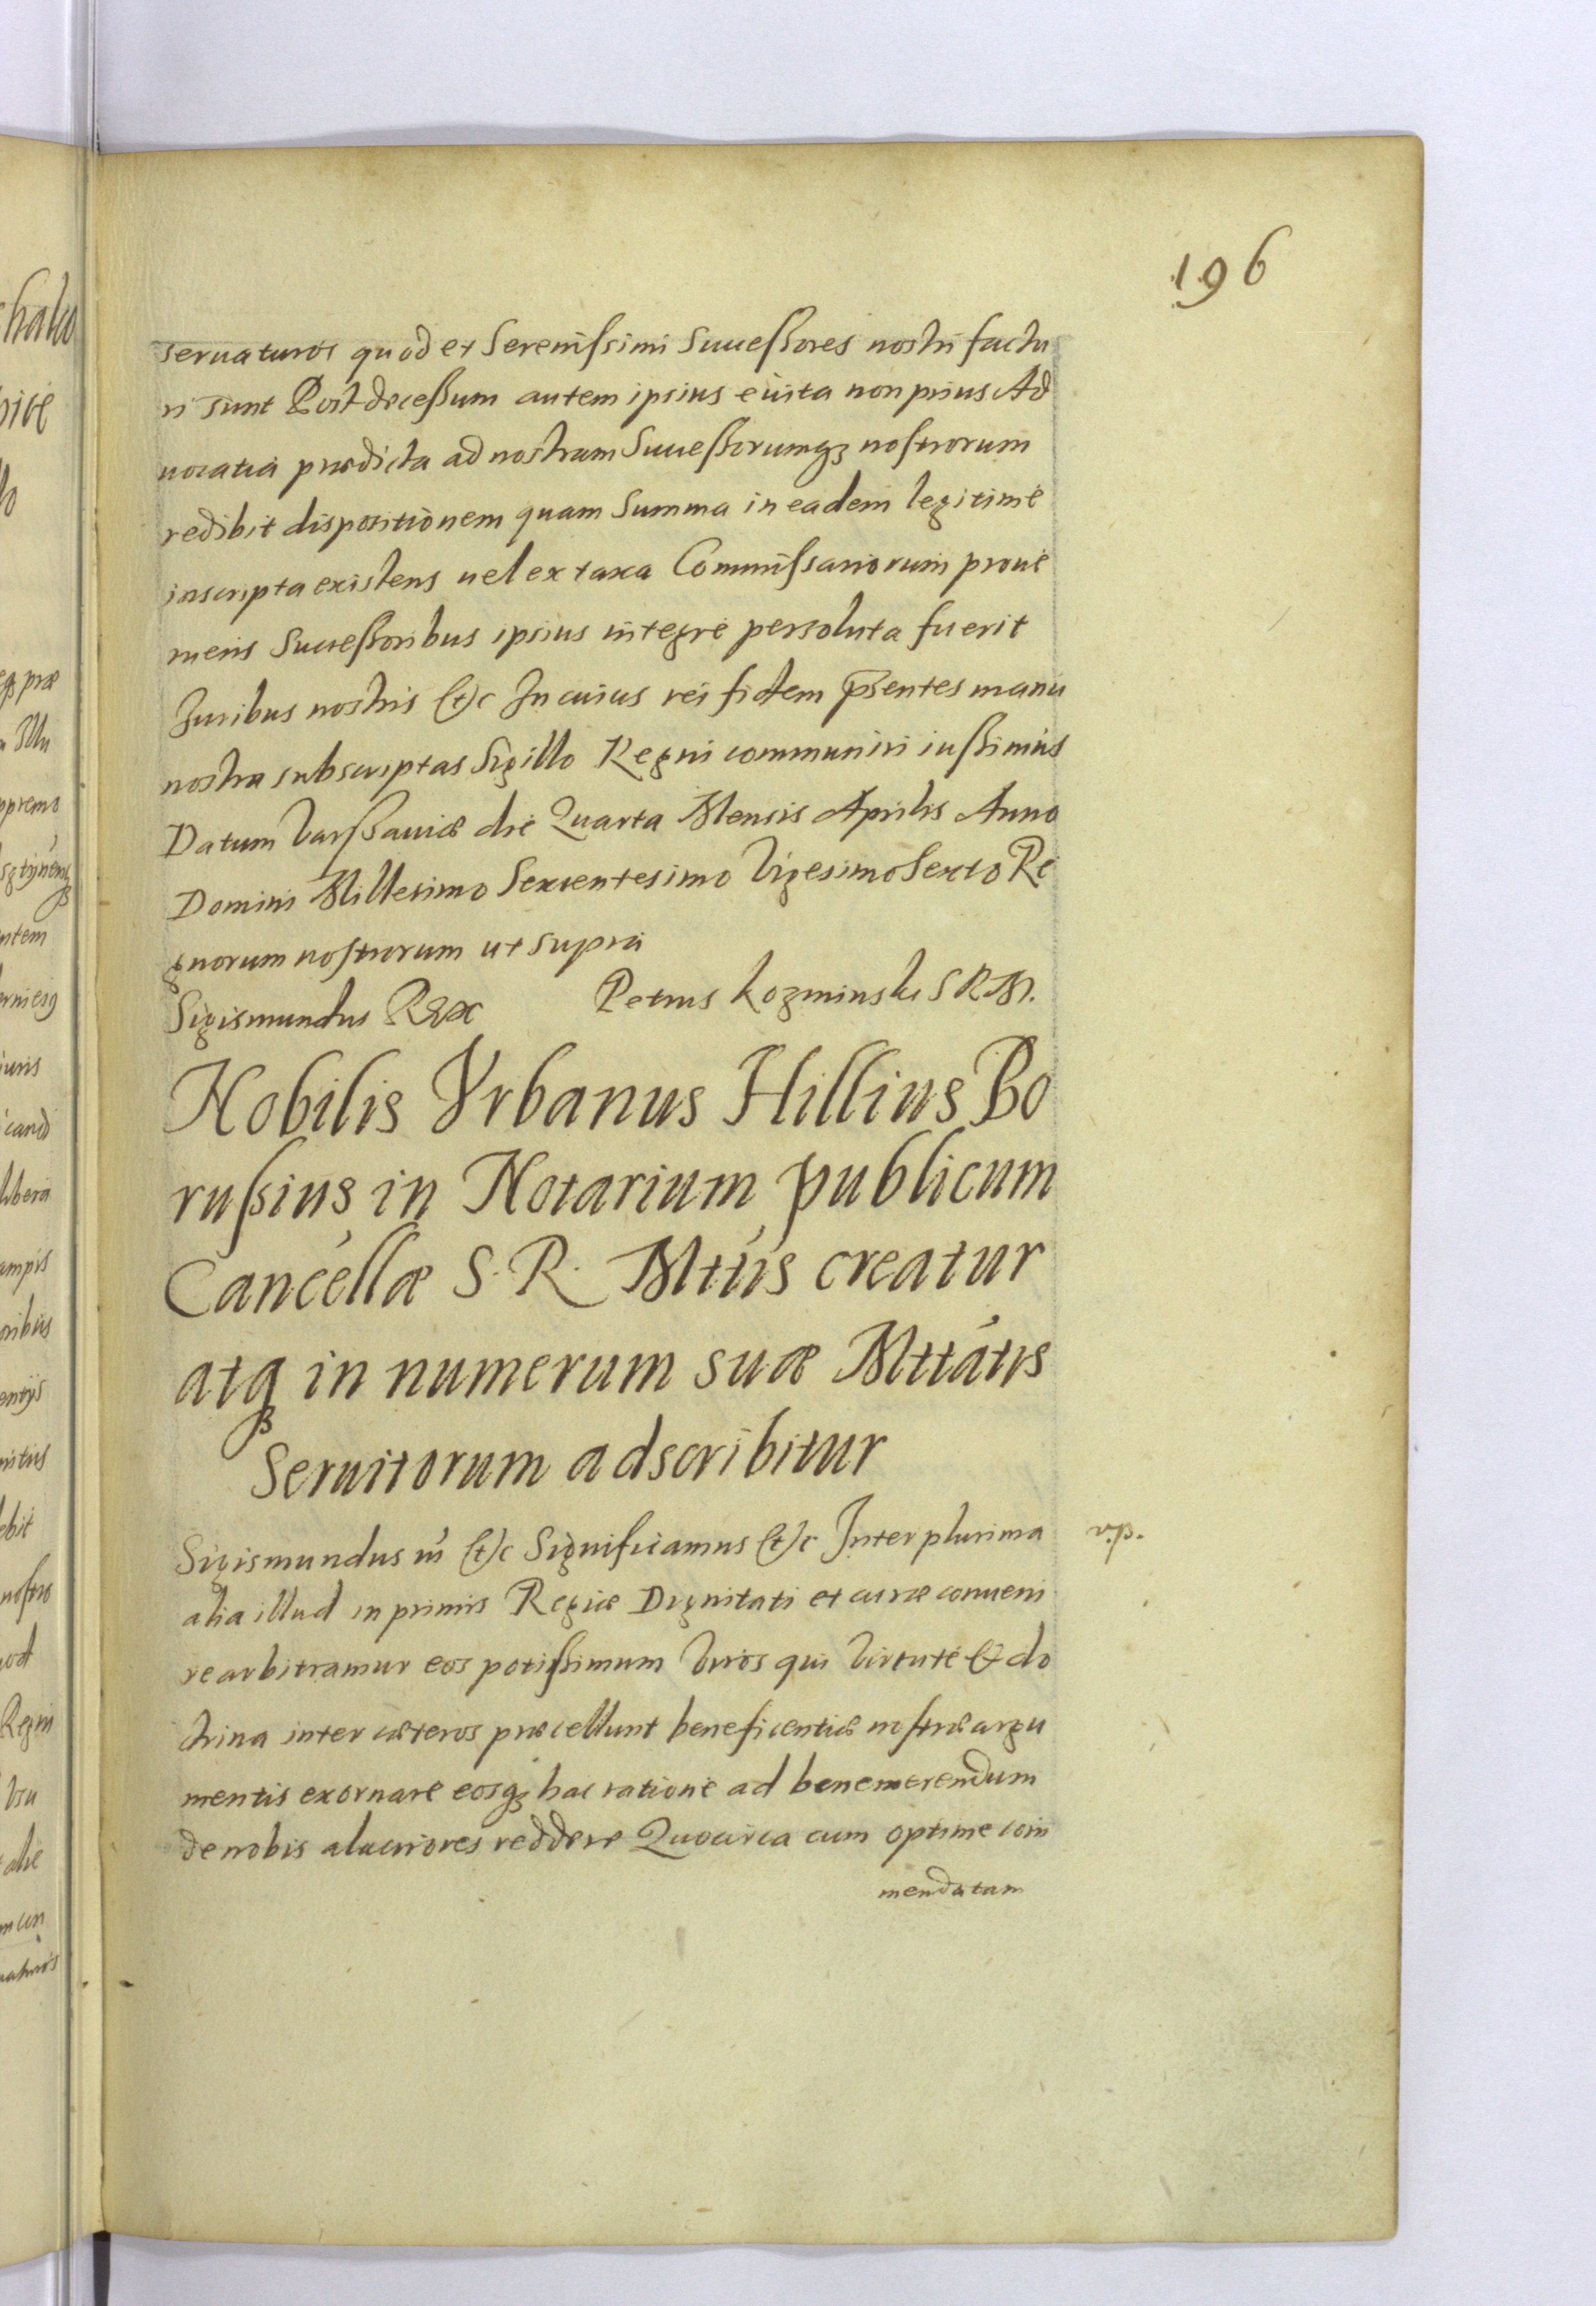 196
seruaturos quod et Serenissimi Successores nostri factu
ri sunt Post decessum autem ipsius e uita non prius Ad
uocatia prædicta ad nostram Successorumq nostrorum
redibit dispositionem quam Summa in eadem legitime
inscripta existens uel ex taxa Commissariorum proue
niens Successoribus ipsius integre persoluta fuerit
Juribus nostris (et)c In cuius rei fidem p̄sentes manu
nostra subscriptas Sigillo Regni communiri iussimus
Datum Varssauiæ die Quarta Mensis Aprilis Anno
Domini Millesimo Sexcentesimo Vigesimo Sexto Re
gnorum nostrorum ut supra
Sigismundus Rex Petrus Kozminski S R M.
Nobilis Vrbanus Hillius Bo
russius in Notarium publicum
Cancellæ S. R. Mttis creatur
atq in numerum suæ Mttatis
Seruitorum adscribitur
Sigismundus III (et)c Significamus (et)c Inter plurima
alia illud in primis Regiæ Dignitati et curæ conueni
re arbitramur eos potissimum Viros qui Virtute & do
ctrina inter cæteros præcellunt beneficentiæ nostræ argu
mentis exornare eosq hac ratione ad benemerendum
de nobis alacriores reddere Quocirca cum optime com
mendatam